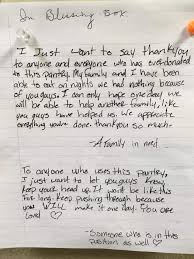 In Blessing Box
I Just want to say thankyou
to anyone and everyone who has ever donated
to this pantry. My family and I have been
able to eat on nights we had nothing because
of you guys. I can only hope one day we
will be able to help another family, like
you guys have helped us. We appreciate
everything you've done. thankyou so much-
-A family in need
To anyone who uses this pantry,
I just want to let you guys know
keep your head up. It wont be like this
for long. Keep pushing through because
you WILL make it one day. You are
loved ♡
-Someone who is in this
position as well ♡